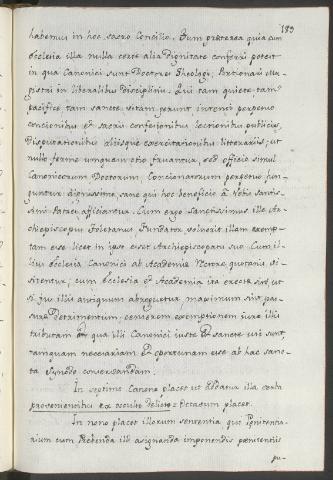 189
habemus in hoc sacro Concilio. Tum præterea quia cum
Ecclesia illa nulla certe alia dignitate conferri potest
in qua Canonici sunt Doctores Theologi, Portionarii Ma-
gistri in liberalibus disciplinis. Qui tam quiete tam
pacifice tam sancte vitam gerunt, intenti perpetuo
concionibus et sacris confessionibus lectionibus publicis,
Disputationibus aliisque exercitationibus litterariis, ut
nullo ferme unquam otio fruantur, sed officio simul
Canonicorum Doctorum, Concionatorum perpetuo fun-
guntur dignissime, sane qui hoc beneficio a vobis sanctis-
simi Patres afficiantur. Cum ergo Sanctissimus ille Ar-
chiepiscopus Toletanus, Fundator voluerit illam exemp-
tam esse licet in ipso esset Archiepiscopatu suo. Cum il-
lius Ecclesia Canonici ab Academiæ Rectore quotannis vi-
sitentur, cum Ecclesia et Academia ita erectæ sint, ut
si jus illis antiquum abrogetur, maximum sint pas-
suræ Detrimentum, censerem exemptionem jure illis
tributam et qua illi Canonici juste et sancte usi sunt,
tamquam necessariam et oportunam esse ab hac sanc-
ta Synodo conservandam.
In septimo Canone placet ut addatur illa exta
provenientibus ex occulto delicto = Detasum placet.
In nono placet illorum sententia qui Pœnitentia-
rium cum Præbenda illi asignanda imponendis pœnitentiis
pu-